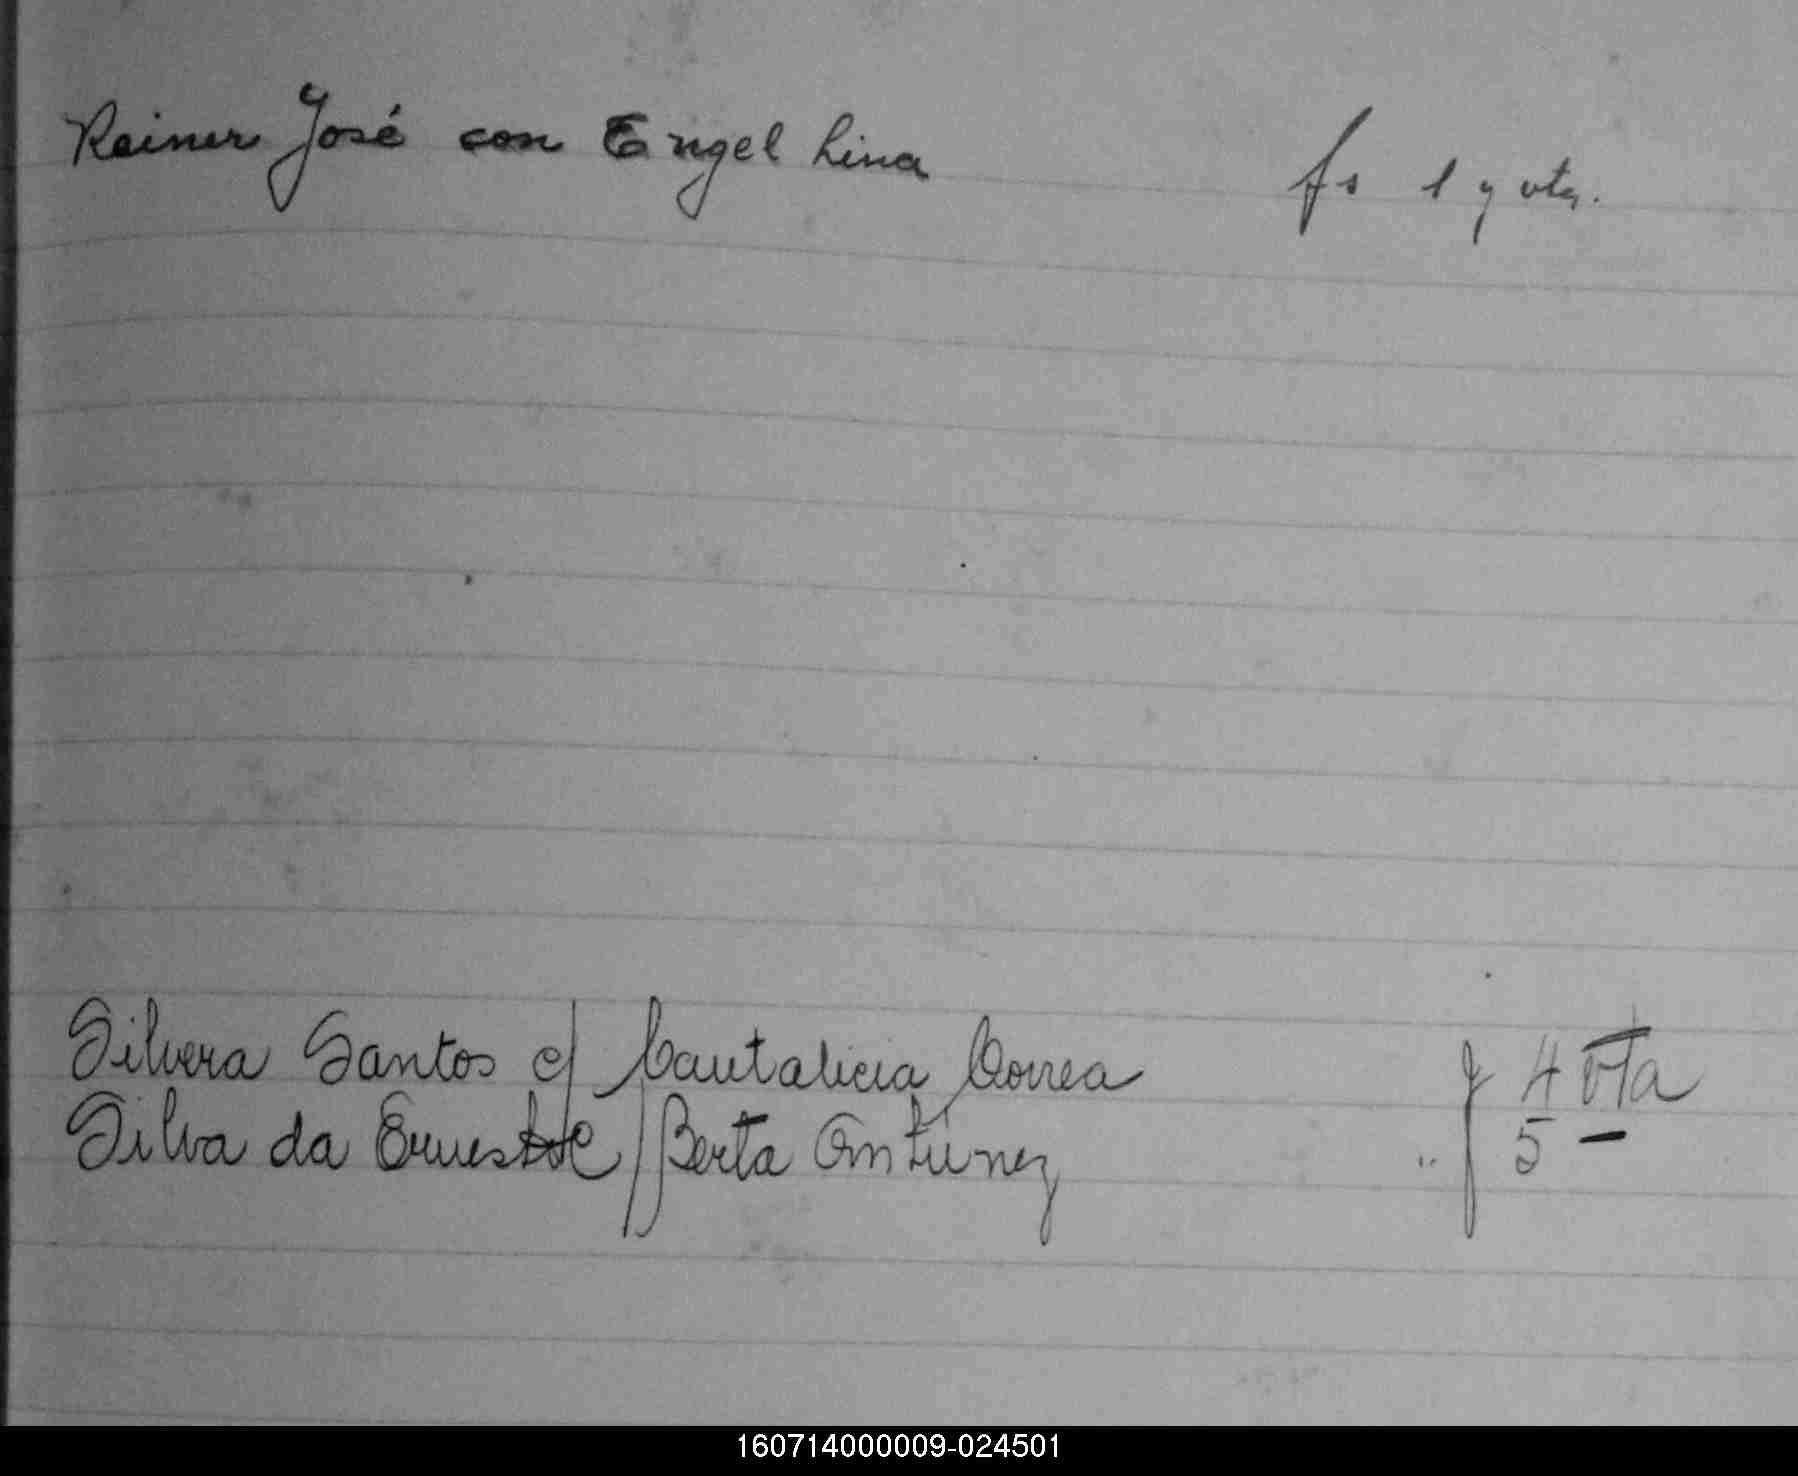 Rainer José con Engel Lina fs 1 y vta.
Silvera Santos c/ Cantalicia Correa f 4 vta
Silva da Ernesto c/ Berta Antúnez " f 5 —
160714000009-024501